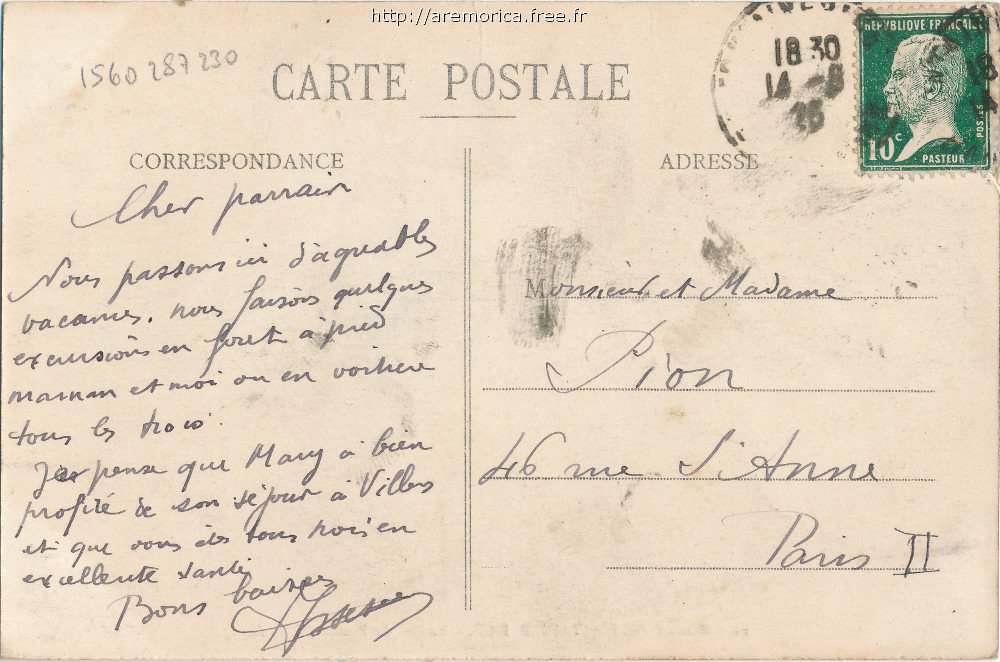 http://aremorica.free.fr
1560 287 230
CARTE POSTALE
18 30
14 -8
25
REPVBLIQVE FRANÇAISE
POSTES
10c
PASTEUR
CORRESPONDANCE
ADRESSE
Cher parrain
Nous passons ici d'agréables
vacances. nous faisons quelques
excursions en foret à pied
maman et moi ou en voiture
tous les trois.
Je pense que Mary à bien
profité de son séjour à Villers
et que vous êtes tous trois en
excellente santé
Bons baisers
Monsieur et Madame
Pion
46 rue St Anne
Paris II